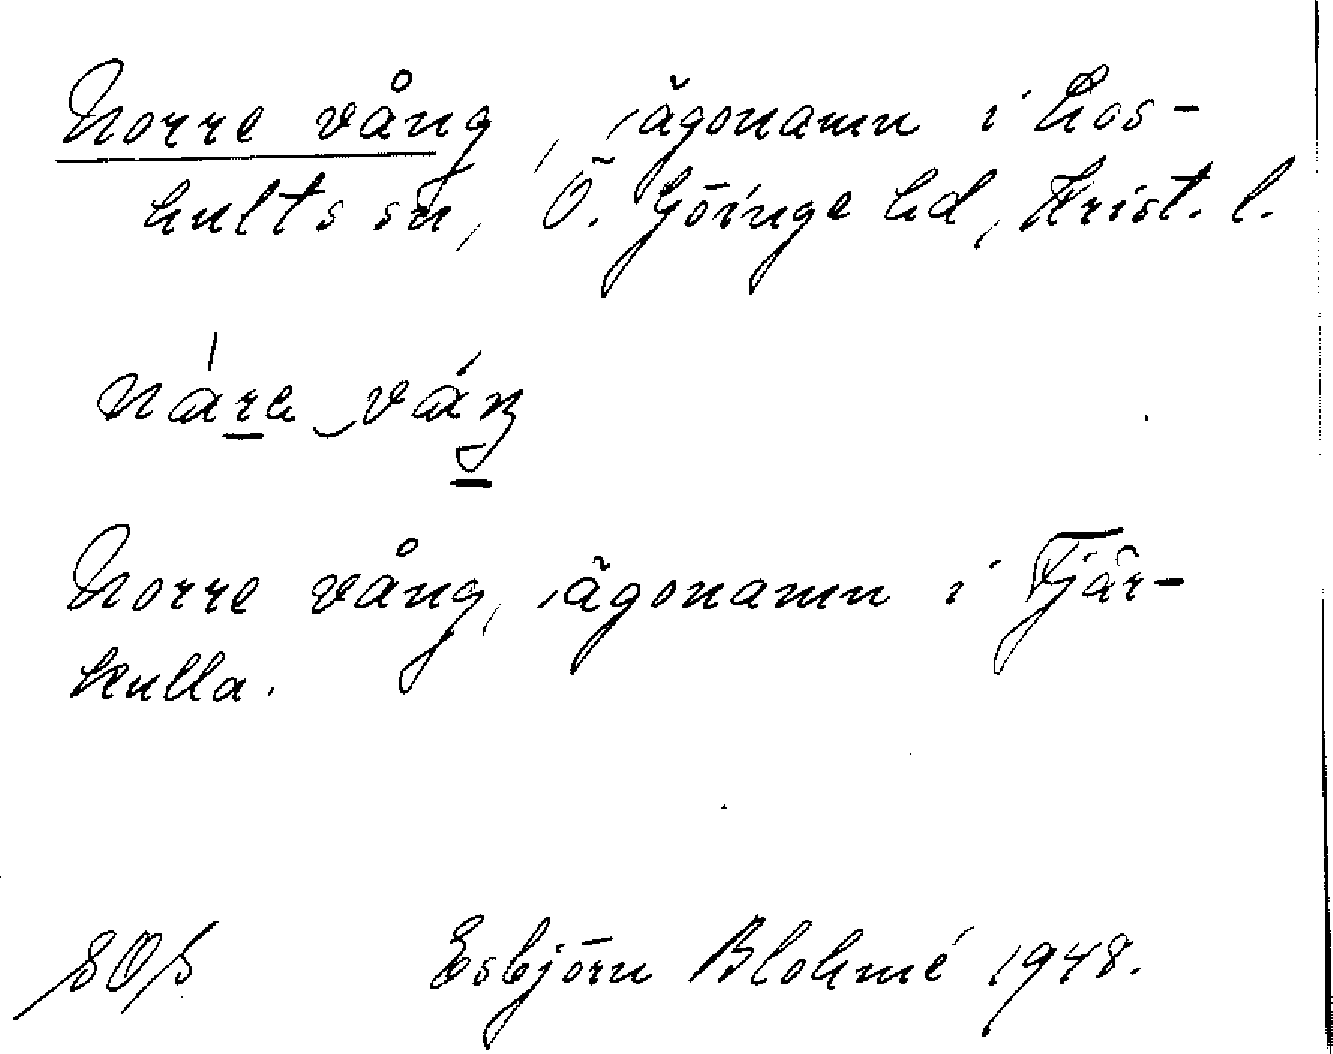 Norre vång, ägonamn i Los-
hults sn, Ö. Göinge hd, Krist. l.
Norre vång, ägonamn i Tjär-
kulla.
Esbjörn Blohmé 1948.